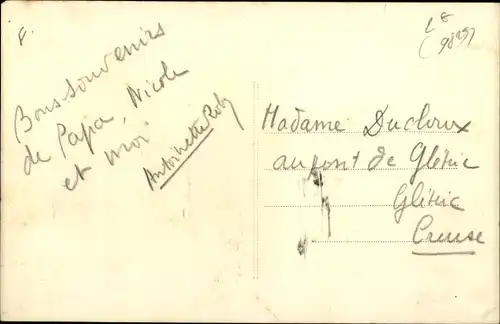 Bons souvenirs
de Papa, Nicole
et moi
Antoinette
Madame Ducloux
au pont de Glénic
Glénic
Creuse